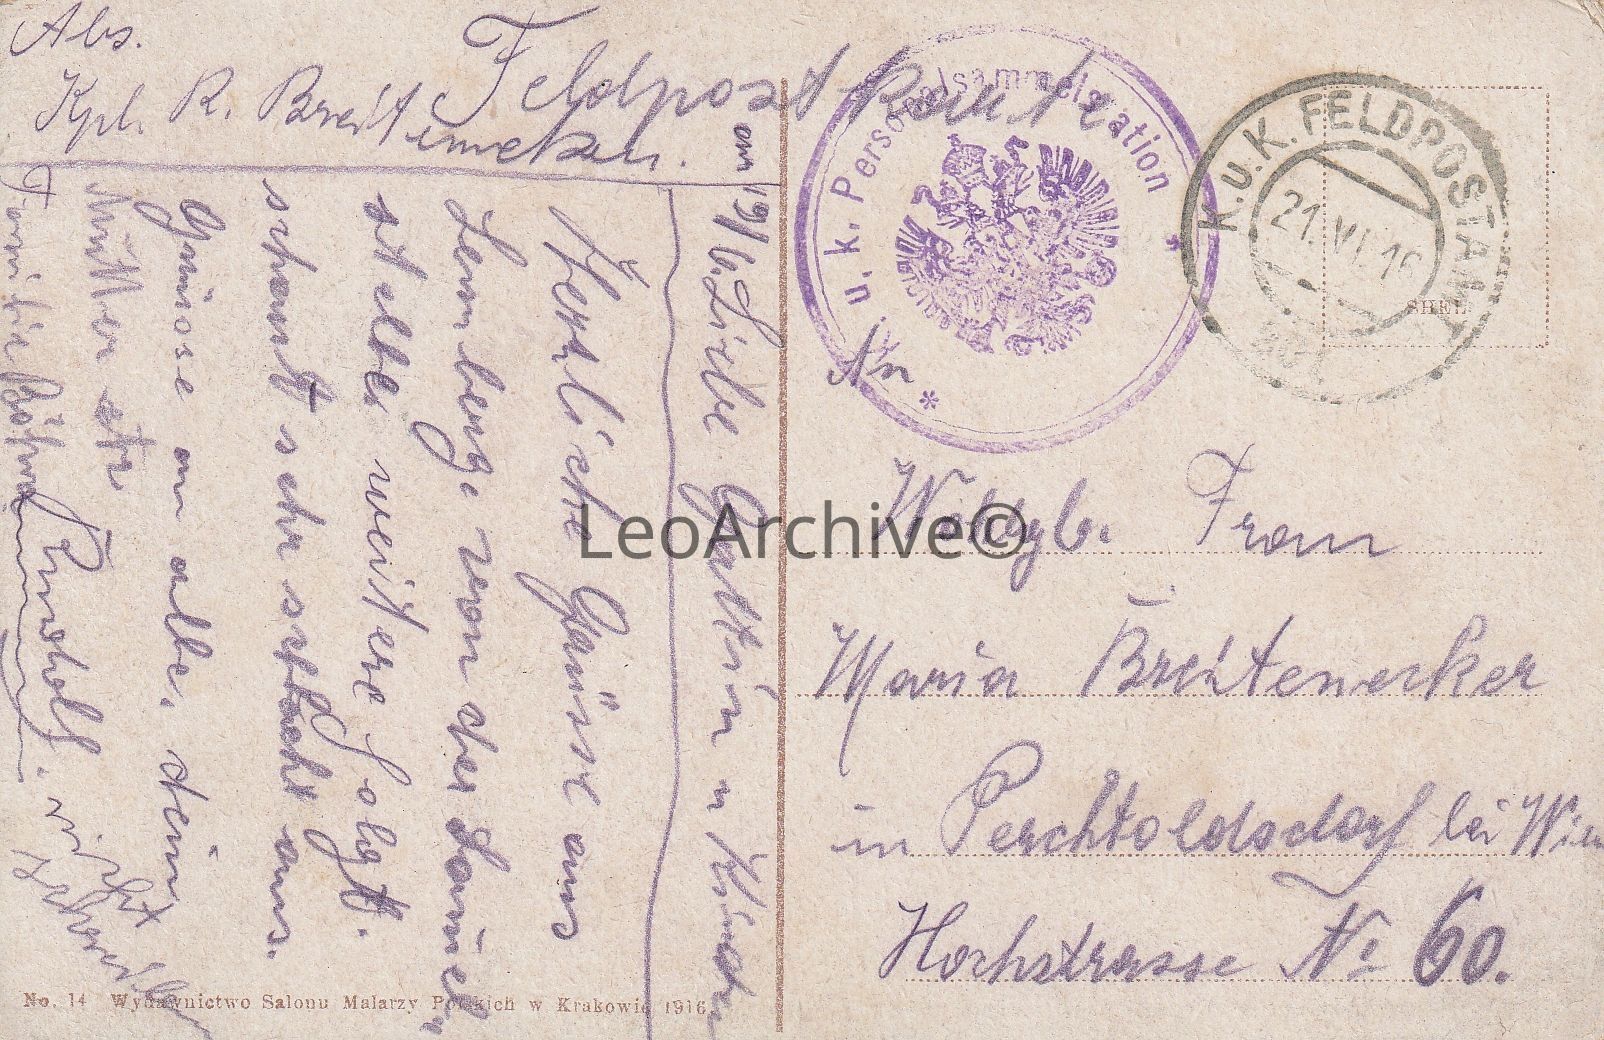 Abs.
Feldpostkarte.
Kpl. R. Breitenecker.
am 19/6. Liebe Gattin u Kinder
Herzliche Grüsse aus
Lemberg von der Famiel
selbe weitere folgt.
schaut sehr schlecht aus.
Grüsse an alle, dein
Rudolf.
nicht
u. k. Personalsammelstation
Nr *
K.u.K. FELDPOSTAMT
21. VI. 16
Wohlgb. Frau
Maria Breitenecker
in Perchtoldsdorf bei Wien
Hochstrasse No 60.
No. 14 Wydawnictwo Salonu Malarzy Polskich w Krakowie 1916.
LeoArchive©